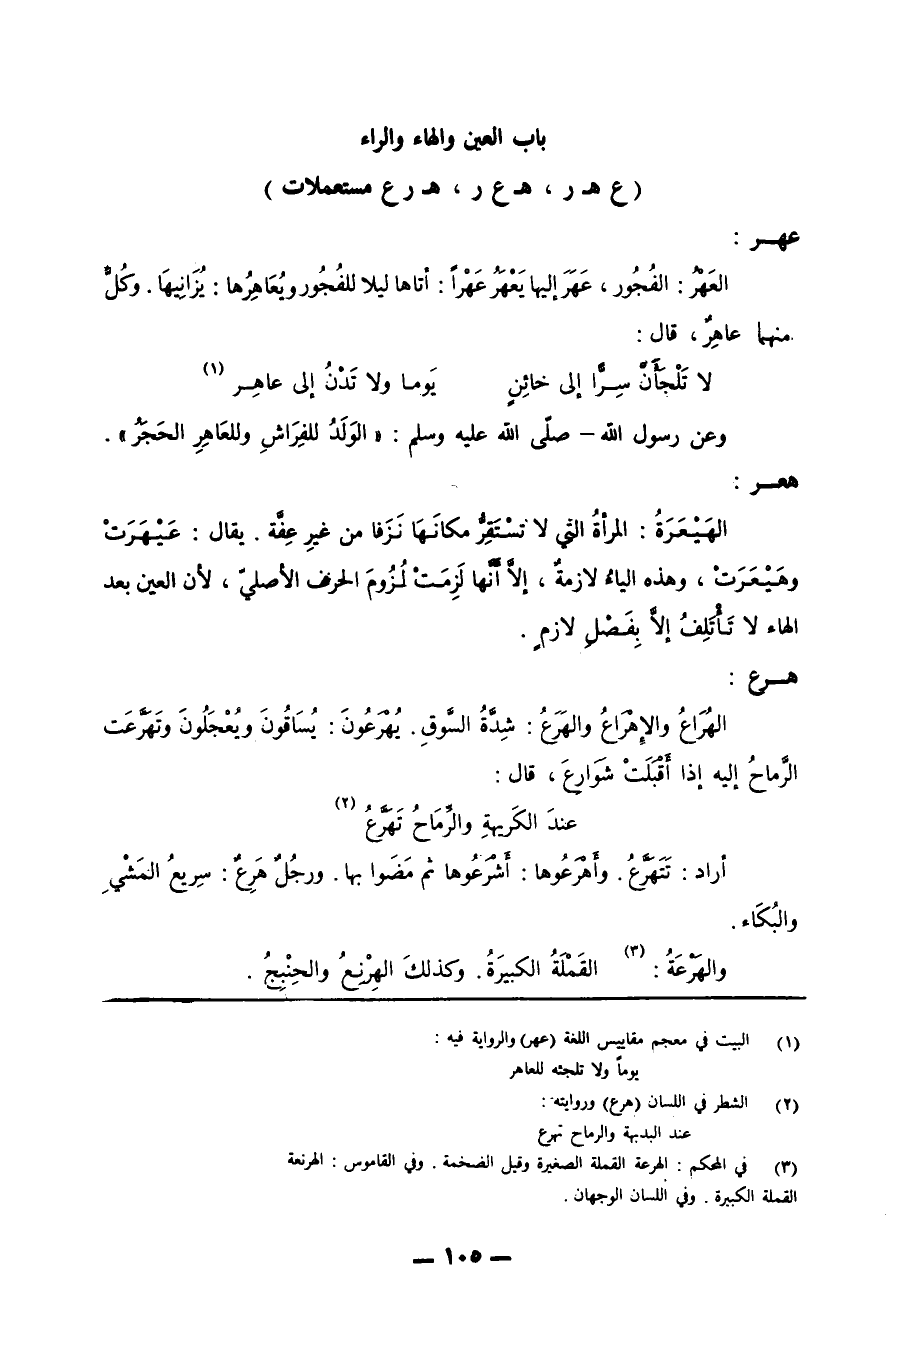 باب العين والهاء والراء
( ع هـ ر ، هـ ع ر ، هـ ر ع مستعملات )
عهــر :
العَهْرُ : الفُجُور ، عَهَرَ إليها يَعْهَرُ عَهْراً : أتاها ليلا للفُجُور ويُعَاهِرُها : يُزَانِيهَا . وكُلٌّ
منهما عاهِرٌ ، قال :
لا تَلْجَأَنَّ سِرًّا إلى خائِنٍ يَوما ولا تَدْنُ إلى عاهِـر (١)
وعن رسول الله – صلّى الله عليه وسلم : « الوَلَدُ للفِرَاشِ وللعَاهِرِ الحَجَرُ » .
هعــر :
الهَيْعَرَةُ : المرأةُ التي لا تسْتَقِرُّ مكانَـهَا نَـزَفا من غيرِ عِفَّة . يقال : عَيْـهَرَتْ
وهَيْـعَرَتْ ، وهذه الياءُ لازمةٌ ، إلاَّ أنَّها لَزِمَتْ لُـزُومَ الحرف الأصليّ ، لأن العين بعد
الهاء لا تَـأْتَلِفُ إلاَّ بِفَـصْلٍ لازمٍ .
هــرع :
الهُرَاعُ والإهْرَاعُ والهَرَعُ : شِدَّةُ السَّوق . يُهْرَعُونَ : يُسَاقُونَ ويُعْجَلُونَ وتَهَرَّعَت
الرِّماحُ إليه إذا أَقْبَلَتْ شَوَارِعَ ، قال :
عندَ الكَريهةِ والرِّمَاحُ تَهَرَّعُ (٢)
أراد : تَتَهَرَّعُ . وأَهْرَعُوها : أَشْرَعُوها ثم مَضَوا بها . ورجُلٌ هَرِعٌ : سِريعُ المَشْيِ
والبُكَاء .
والهَرْعَةُ : (٣) القَمْلَةُ الكبيرَةُ . وكذلكَ الهِرْنِـعُ والحِنْبِجُ .
(١) البيت في معجم مقاييس اللغة (عهر) والرواية فيه :
يوماً ولا تلجئه للعاهر
(٢) الشطر في اللسان (هرع) وروايته :
عند البديهة والرماح تهرع
(٣) في المحكم : الهرعة القملة الصغيرة وقيل الضخمة . وفي القاموس : الهرنعة
القملة الكبيرة . وفي اللسان الوجهان .
— ١٠٥ —